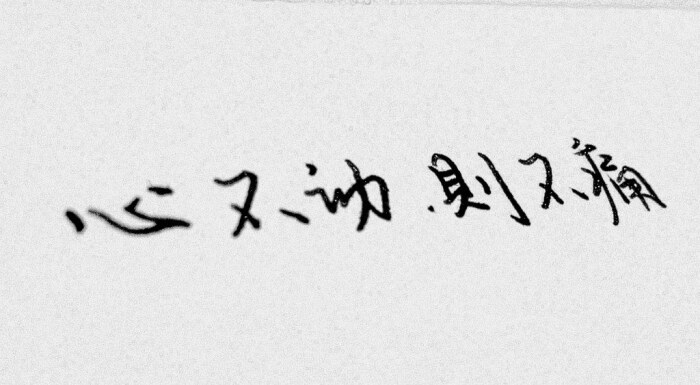 心不动則不痛